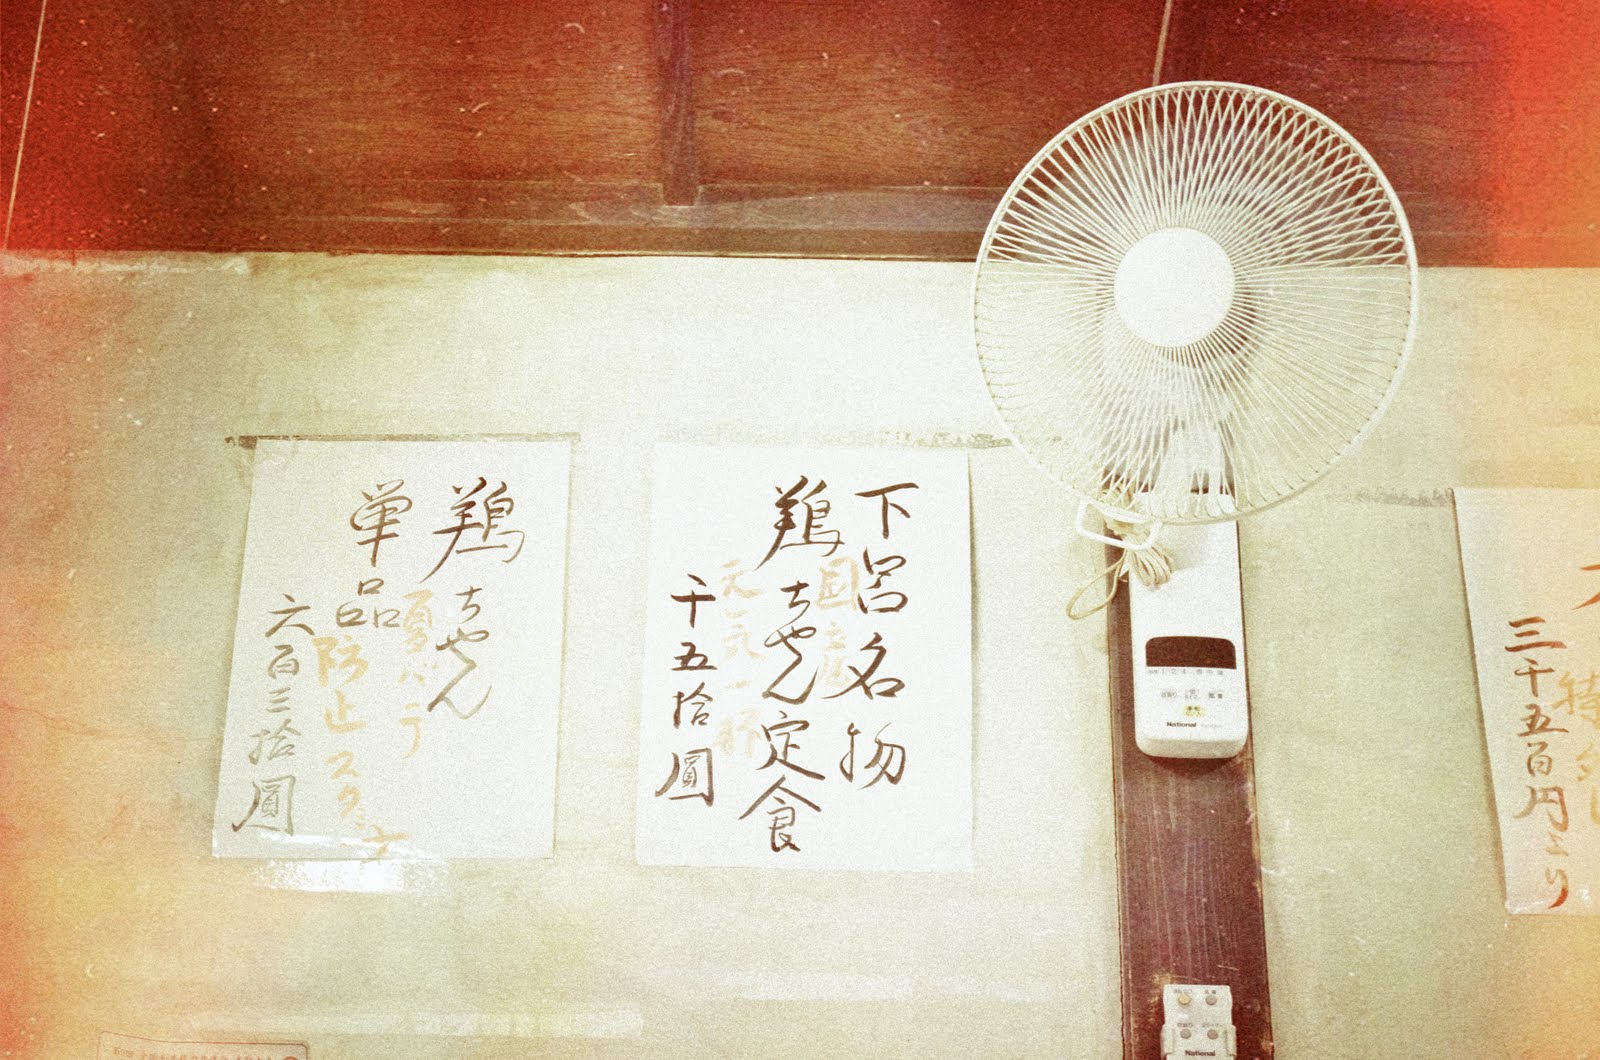 三千五百円より
下呂名物
鶏ちゃん定食
千五拾圓
国産
元気一杯
鶏ちゃん
単品
六百三拾圓
夏バテ
防止スタミナ
National
National